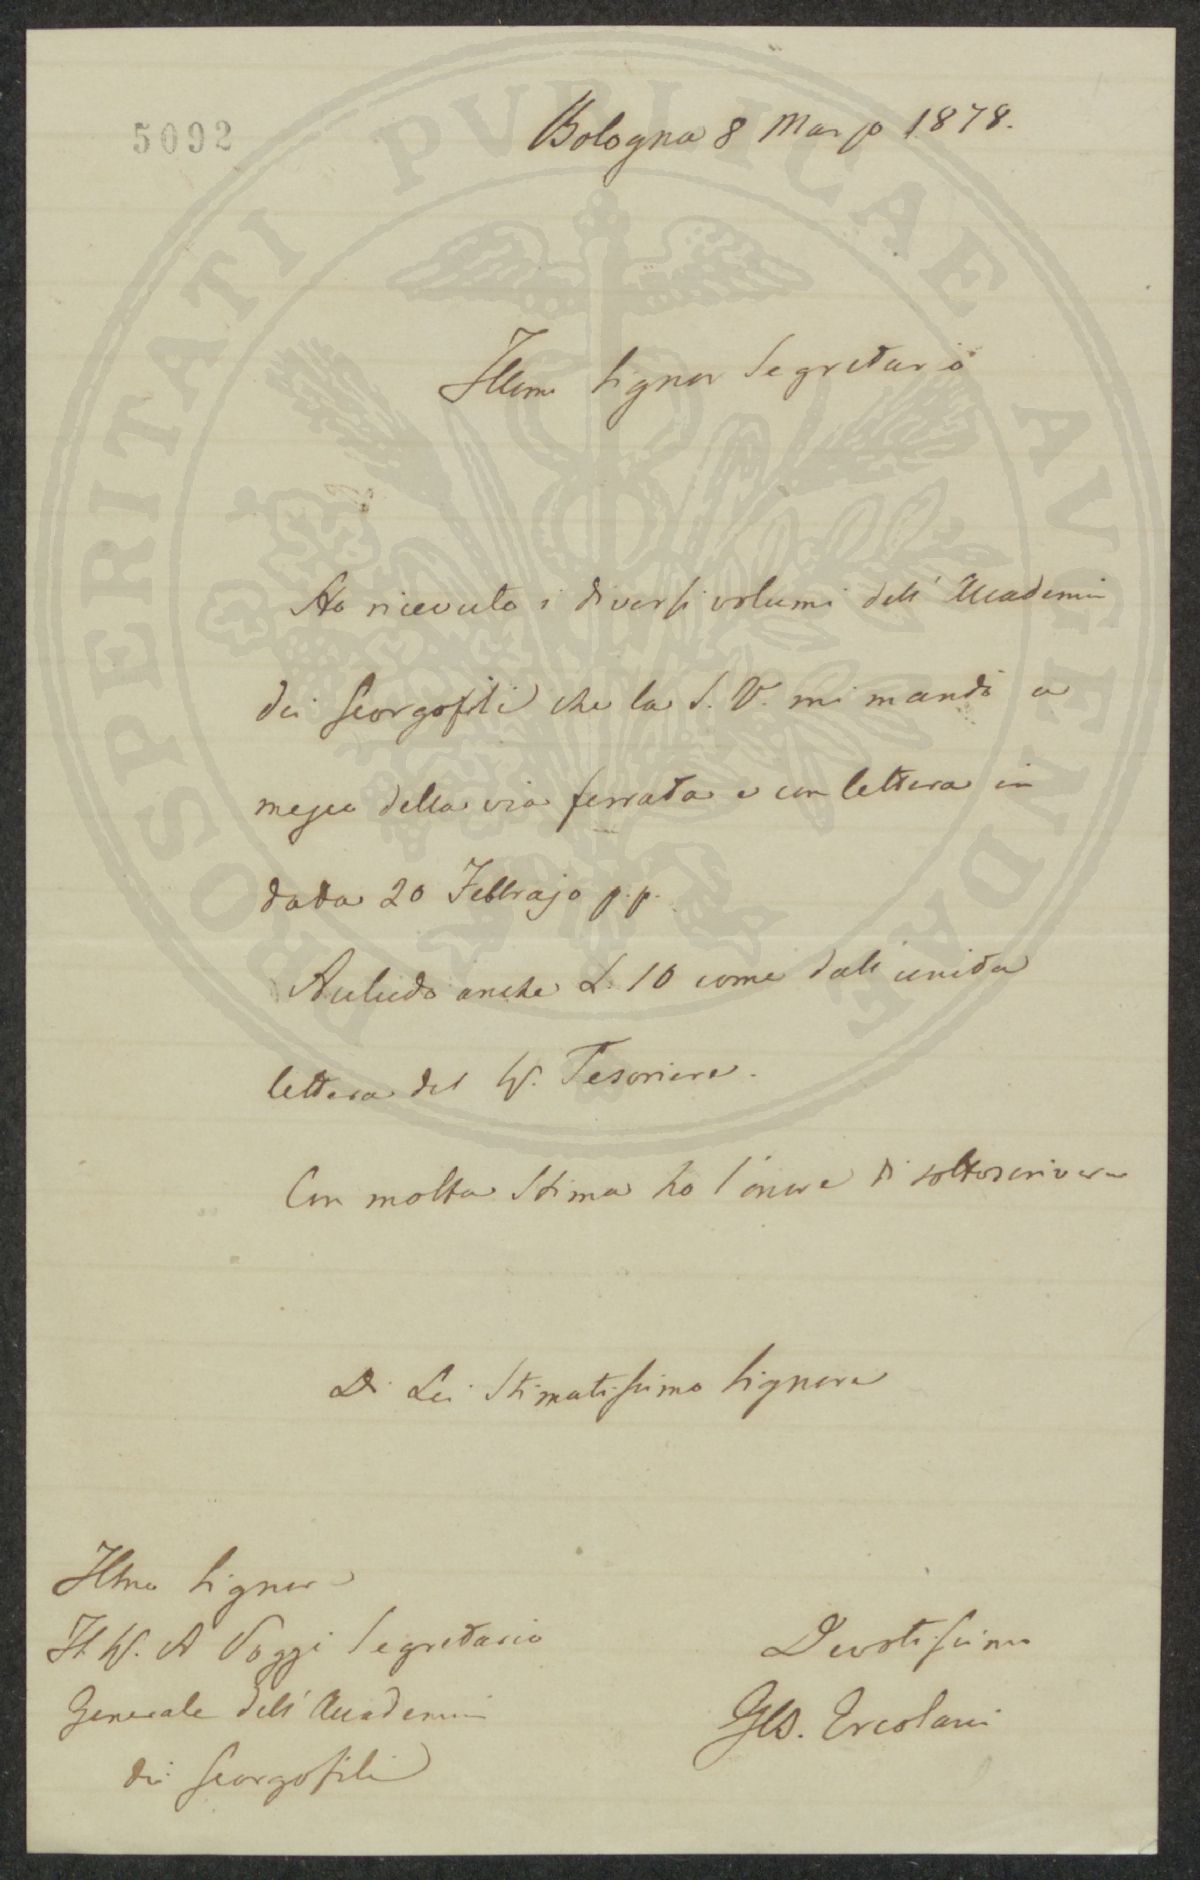 5092
Bologna 8 Marzo 1878.
Illmo Signor Segretario
Ho ricevuto i diversi volumi dell' Accademia
dei Georgofili che la S. V. mi mandò a
mezzo della via ferrata e con lettera in
data 20 Febbrajo p.p.
Accludo anche L. 10 come dall' unita
lettera del Sig. Tesoriere.
Con molta Stima ho l'onore di sottoscrivere
Di Lei Stimatissimo Signore
Illmo Signore
Il Sig. A Poggi Segretario
Generale dell' Accademia
dei Georgofili
Devotissimo
GB. Ercolani
PROSPERITATI PVBLICAE AVGENDAE